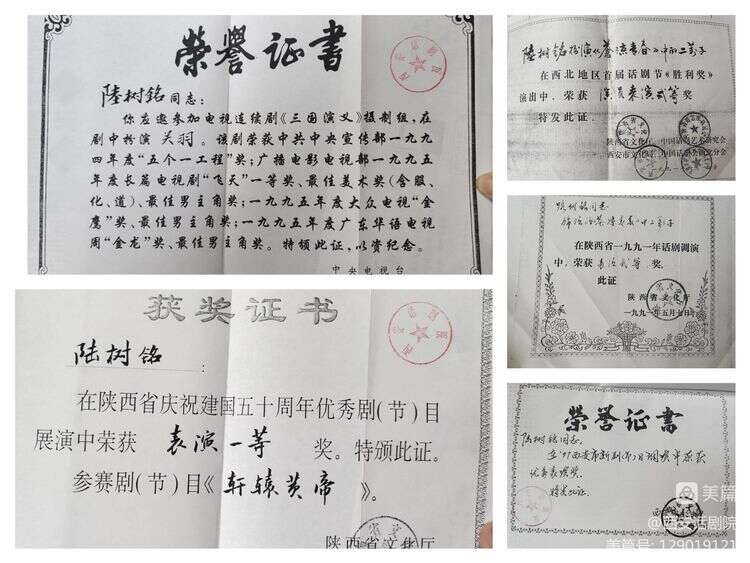 榮譽证書
陸树铭同志：
你应邀参加电视连续剧《三国演义》摄制组，在
剧中扮演关羽。该剧荣获中共中央宣传部一九九
四年度“五个一工程”奖；广播电影电视部一九九五
年度长篇电视剧“飞天”一等奖、最佳美术奖(含服、
化、道)、最佳男主角奖；一九九五年度大众电视“金
鹰”奖、最佳男主角奖；一九九五年度广东华语电视
周“金龙”奖、最佳男主角奖。特颁此证，以资纪念。
中央电视台
获奖证书
陆树铭：
在陕西省庆祝建国五十周年优秀剧(节)目
展演中荣获 表演一等 奖。特颁此证。
参赛剧(节)目《轩辕黄帝》。
陕西省文化厅
在西北地区首届话剧节《胜利奖》
演出中，荣获 演员表演贰等 奖
特发此证。
陕西省文化厅 中国话剧艺术研究会
西安市文化局
同志
在陕西省一九九一年话剧调演
中，荣获 表演贰等 奖
此证
陕西省文化厅
一九九一年五月七日
榮譽证書
陆树铭同志：
优秀表演奖。
特发此证。
美篇
@西安话剧院
美篇号：129019121